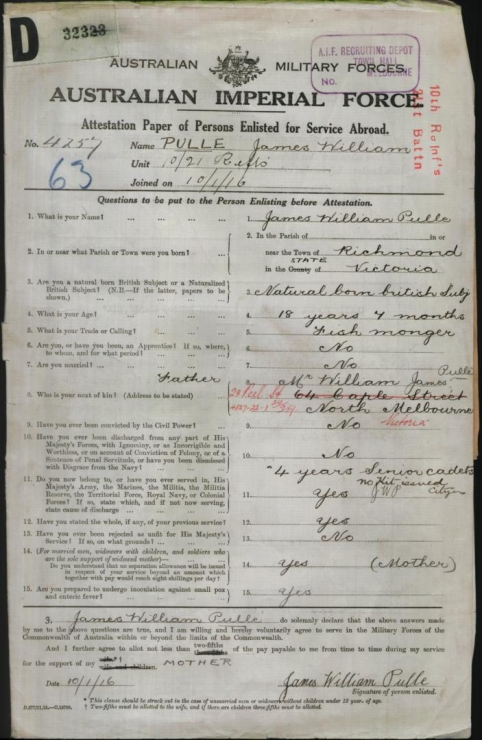 D
32323
A.I.F. RECRUITING DEPOT
TOWN HALL
MELBOURNE
NO.
AUSTRALIAN MILITARY FORCES.
AUSTRALIAN IMPERIAL FORCE
10th Reinf's
21st Battn
Attestation Paper of Persons Enlisted for Service Abroad.
No. 4257 Name PULLE James William
63
Unit 10/21 Reifs
Joined on 10/1/16
Questions to be put to the Person Enlisting before Attestation.
1. What is your Name? ... ... ... ... 1. James William Pulle
2. In or near what Parish or Town were you born? ... 2. In the Parish of in or
near the Town of Richmond
STATE
in the County of Victoria
3. Are you a natural born British Subject or a Naturalized
British Subject? (N.B.—If the latter, papers to be
shown.) ... ... ... ... 3. Natural born british Subj
4. What is your Age? ... ... ... ... 4. 18 years 7 months
5. What is your Trade or Calling? ... ... ... 5. Fish monger
6. Are you, or have you been, an Apprentice? If so, where,
to whom, and for what period? ... ... 6. No
7. Are you married? ... ... ... ... 7. No
Father
8. Who is your next of kin? (Address to be stated) 8. Mr William James Pulle
64 Capel Street
North Melbourne
Victoria
9. Have you ever been convicted by the Civil Power? ... 9. No
10. Have you ever been discharged from any part of His
Majesty's Forces, with Ignominy, or as Incorrigible and
Worthless, or on account of Conviction of Felony, or of a
Sentence of Penal Servitude, or have you been dismissed
with Disgrace from the Navy? ... ... 10. No
11. Do you now belong to, or have you ever served in, His
Majesty's Army, the Marines, the Militia, the Militia
Reserve, the Territorial Force, Royal Navy, or Colonial
Forces? If so, state which, and if not now serving,
state cause of discharge ... ... ... 11. Yes
4 years Senior cadets
no Kit issued
JWP Citizen
12. Have you stated the whole, if any, of your previous service? 12. Yes
13. Have you ever been rejected as unfit for His Majesty's
Service? If so, on what grounds? ... ... 13. No
14. (For married men, widowers with children, and soldiers who
are the sole support of widowed mother)—
Do you understand that no separation allowance will be issued
in respect of your service beyond an amount which
together with pay would reach eight shillings per day? 14. Yes (Mother)
15. Are you prepared to undergo inoculation against small pox
and enteric fever? ... ... ... 15. Yes
I, James William Pulle do solemnly declare that the above answers made
by me to the above questions are true, and I am willing and hereby voluntarily agree to serve in the Military Forces of the
Commonwealth of Australia within or beyond the limits of the Commonwealth.
And I further agree to allot not less than two-fifths of the pay payable to me from time to time during my service
for the support of my wife and children. MOTHER
Date 10/1/16 James William Pulle
Signature of person enlisted.
* This clause should be struck out in the case of unmarried men or widowers without children under 18 years of age.
† Two-fifths must be allotted to the wife, and if there are children three-fifths must be allotted.